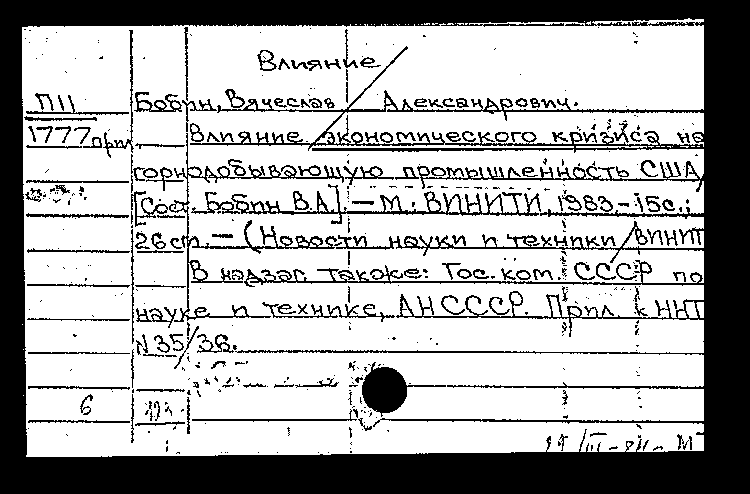 Влияние
П11 Бобин, Вячеслав Александрович.
1777 прил. Влияние экономического кризиса на
горнодобывающую промышленность США/
[Сост. Бобин В.А.] – М.: ВИНИТИ, 1983.– 15с.;
26 см. – (Новости науки и техники / ВИНИТ
В надзаг. также: Гос. ком. СССР по
науке и технике, АН СССР. Прил. к ННТ
N 35/36.
6